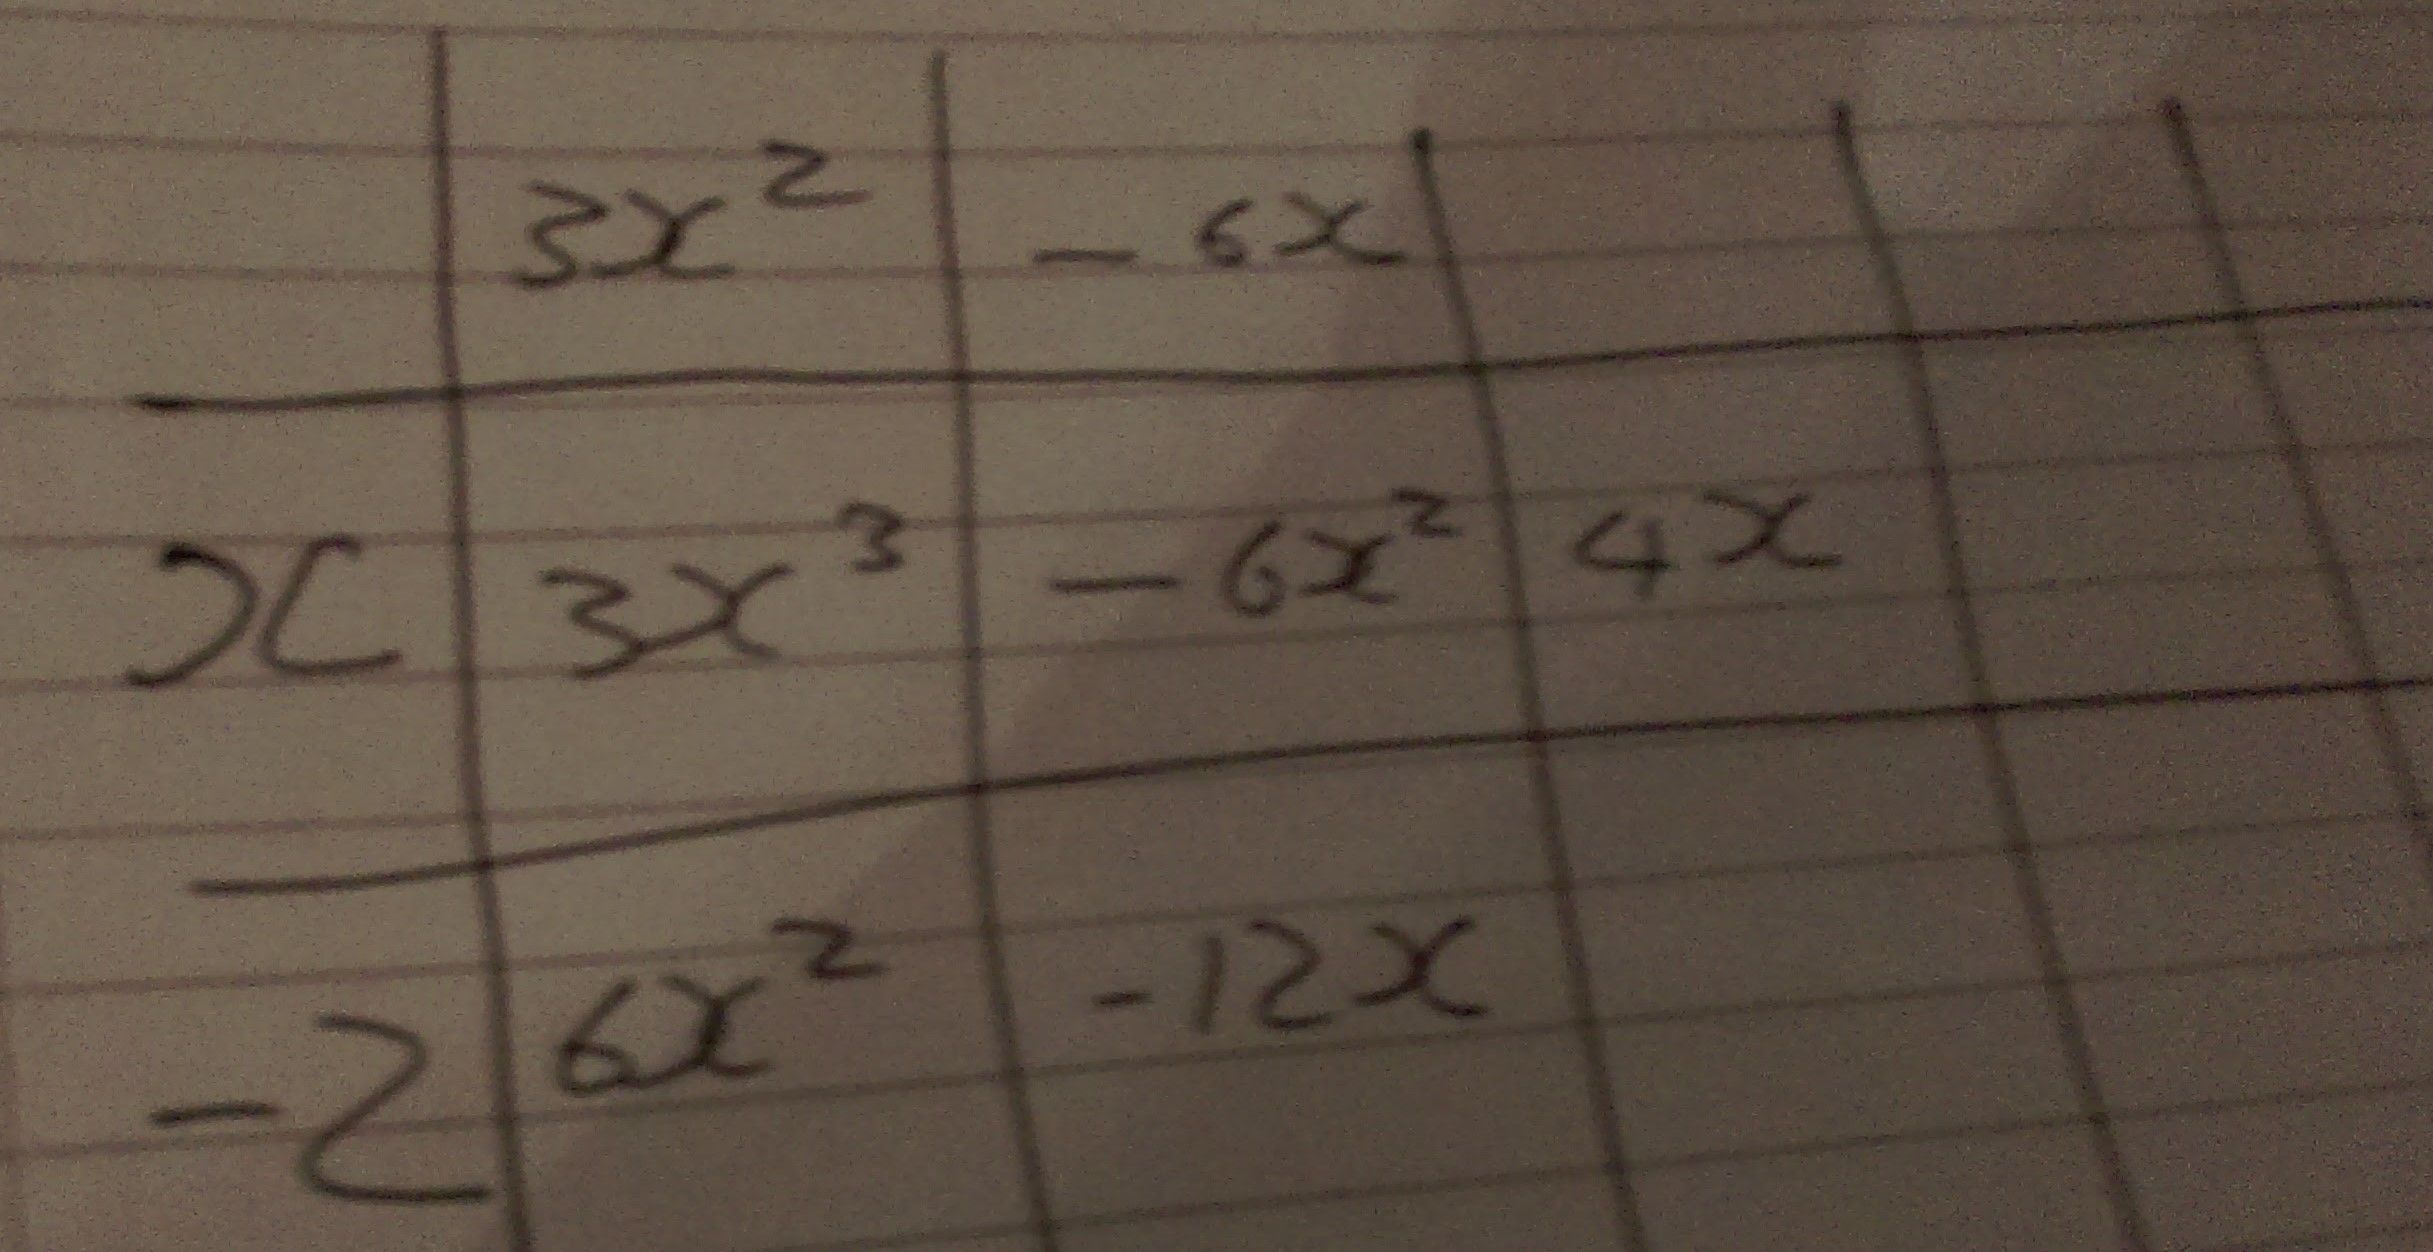 3x² - 6x
x 3x³ - 6x² 4x
-2 6x² -12x